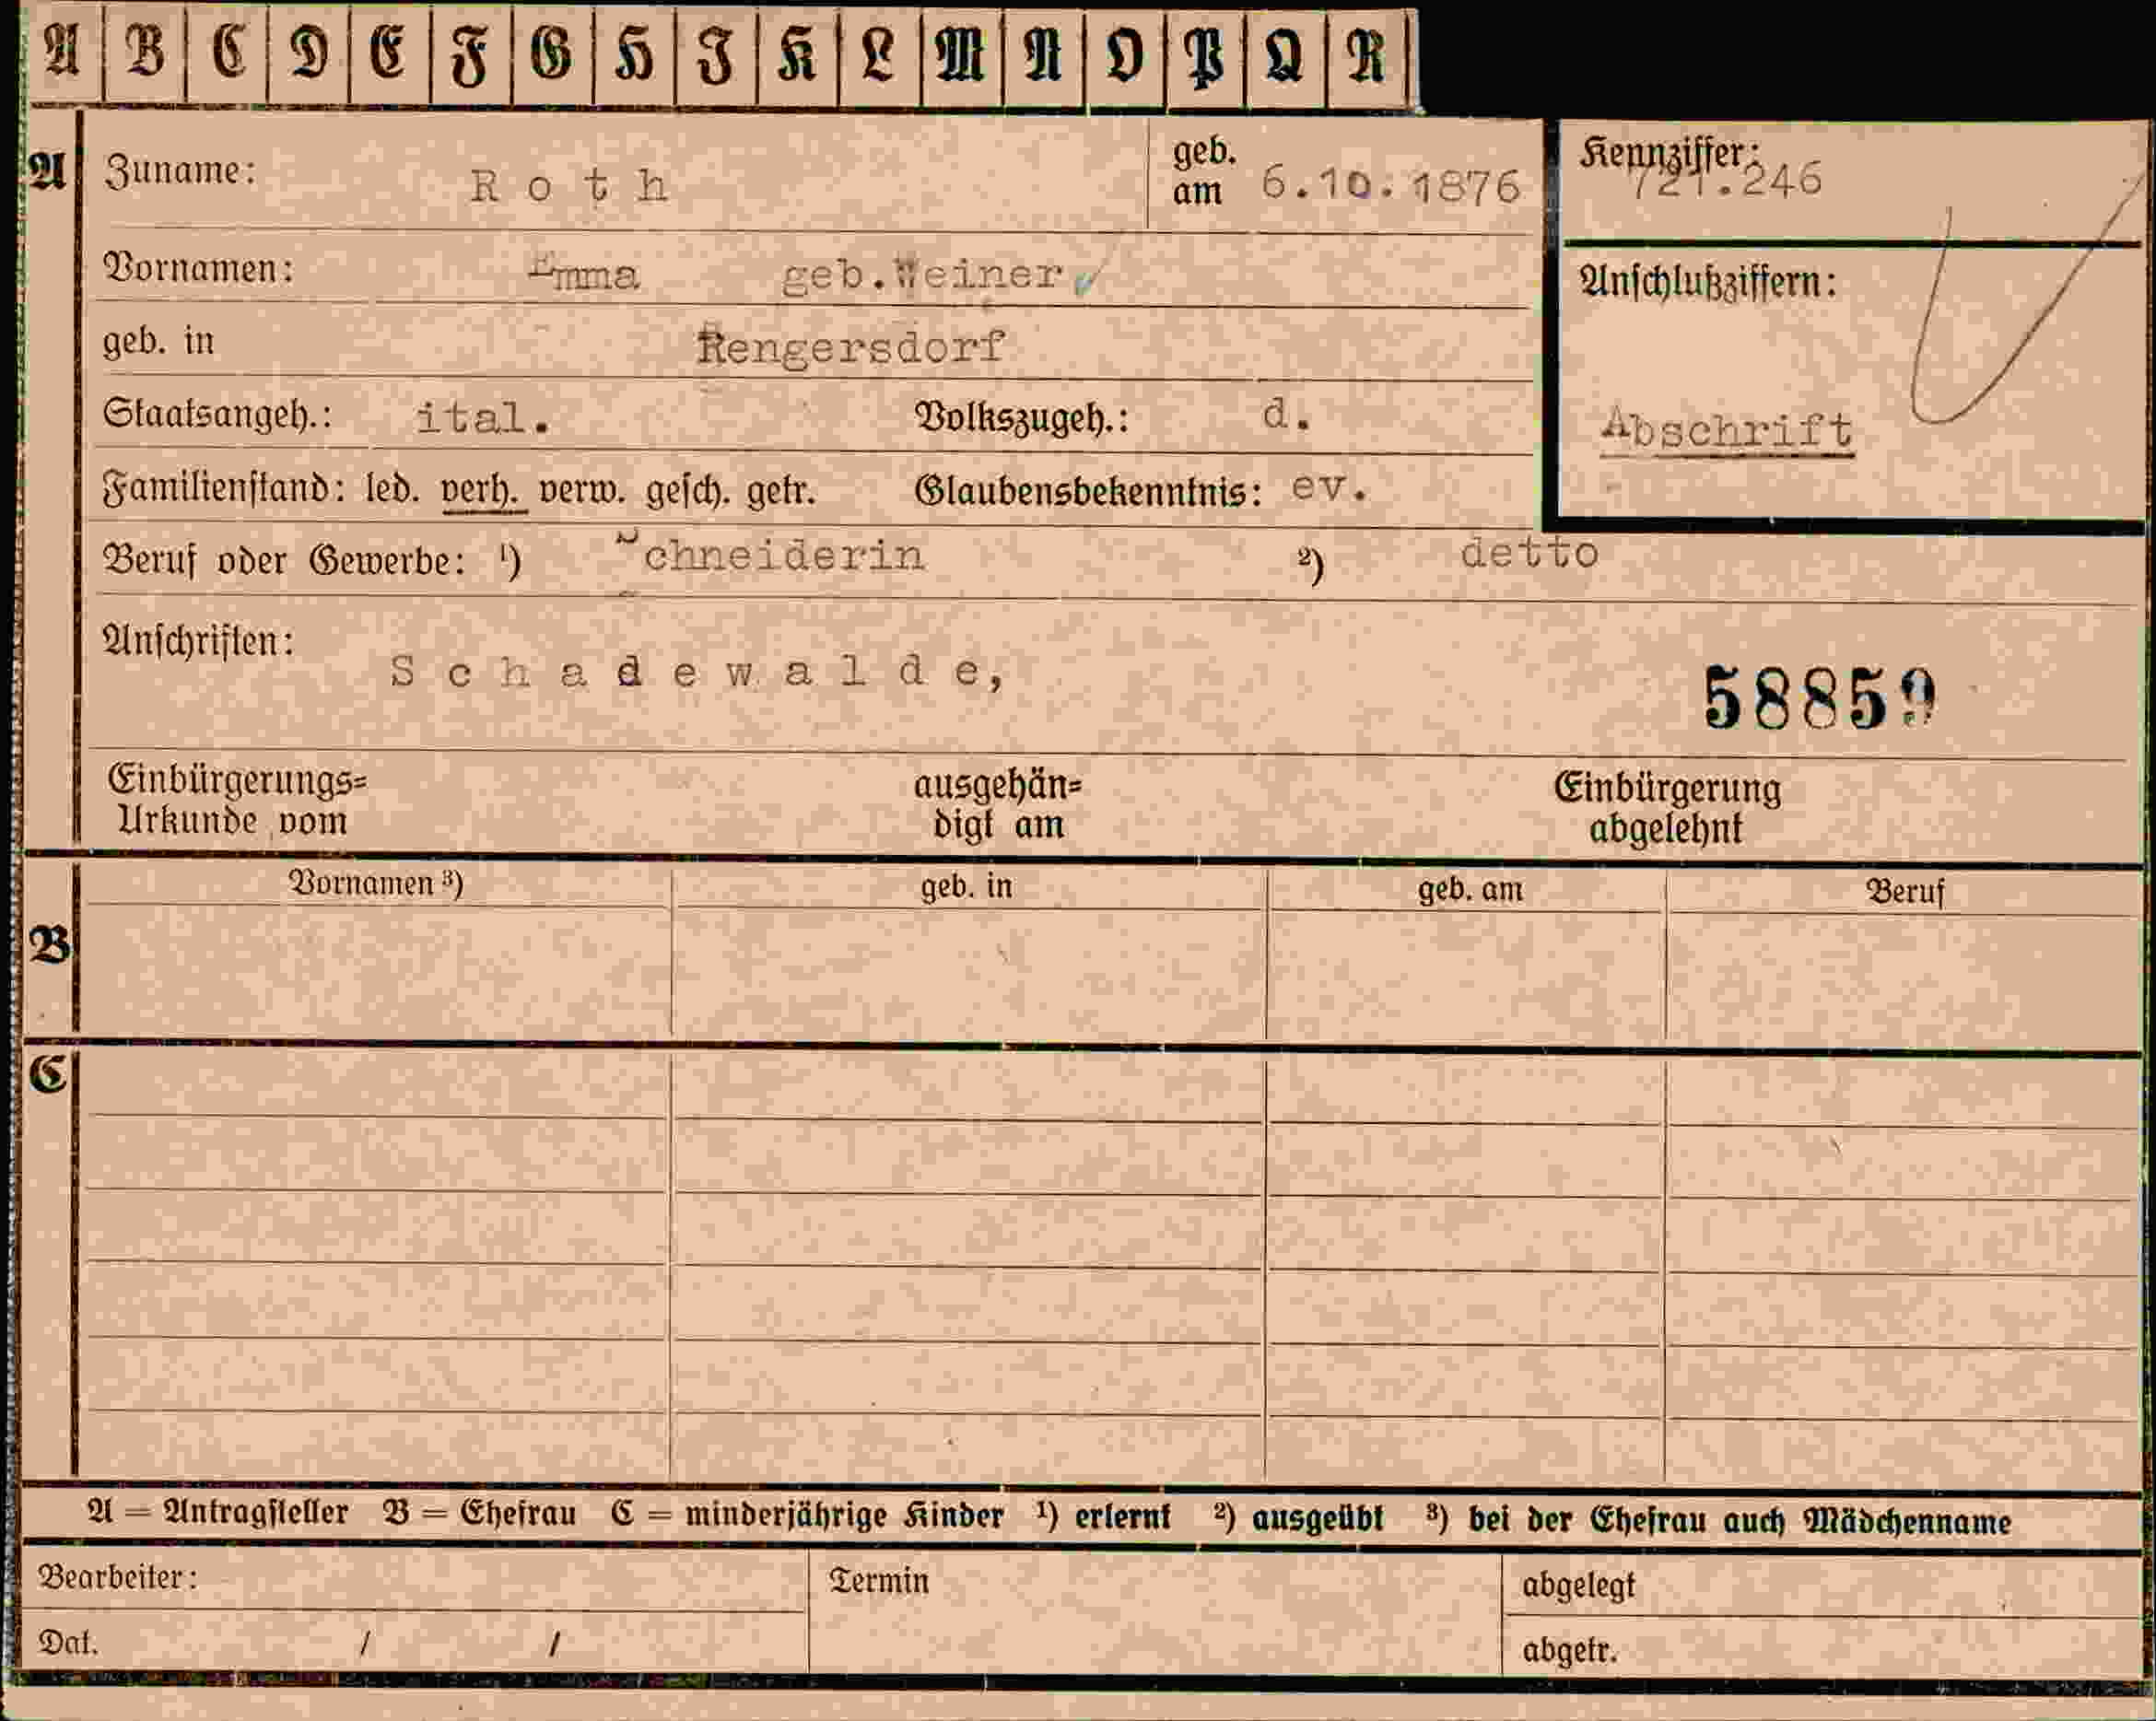 A B C D E F G H I K L M N O P Q R
A Zuname: Roth geb. am 6.10.1876
Kennziffer: 721.246
Vornamen: Emma geb.Weiner
Anschlußziffern:
geb. in Rengersdorf
Staatsangeh.: ital. Volkszugeh.: d.
Abschrift
Familienstand: led. verh. verw. gesch. getr. Glaubensbekenntnis: ev.
Beruf oder Gewerbe: ¹) Schneiderin ²) detto
Anschriften: Schadewalde,
58859
Einbürgerungs= ausgehän= Einbürgerung
Urkunde vom digt am abgelehnt
Vornamen ³) geb. in geb. am Beruf
B
C
A = Antragsteller B = Ehefrau C = minderjährige Kinder ¹) erlernt ²) ausgeübt ³) bei der Ehefrau auch Mädchenname
Bearbeiter: Termin abgelegt
Dat. / / abgetr.